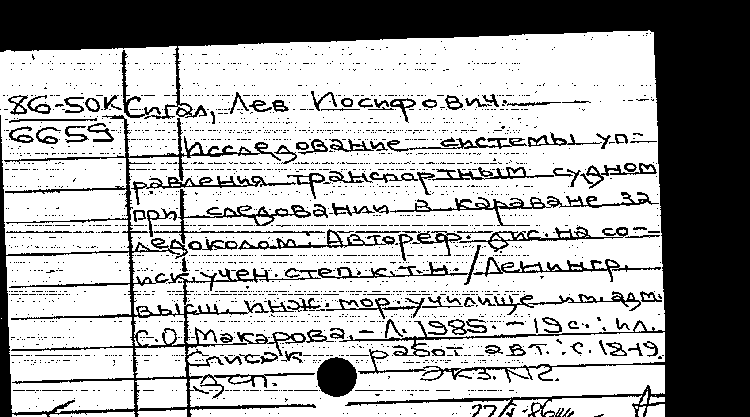 86-50К Сигал, Лев Иосифович.
6659
Исследование системы уп-
равления транспортным судном
при следовании в караване за
ледоколом: Автореф. дис. на со-
иск. учен. степ. к.т.н. / Ленингр.
высш. инж. мор. училище им. адм.
С.О. Макарова. – Л., 1985. – 19 с.: ил.
Список работ авт.: с. 18-19.
ДСП. Экз. №2.